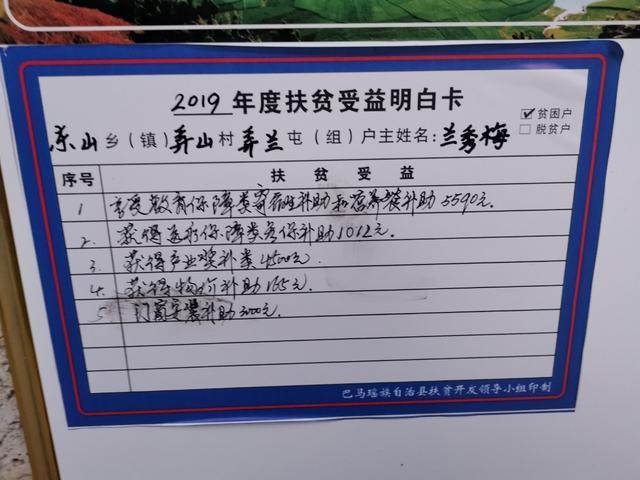 2019 年度扶贫受益明白卡
☑贫困户
☐脱贫户
东山乡（镇）弄山村弄兰屯（组）户主姓名：兰秀梅
序号 扶贫受益
1 享受教育保障类寄宿生补助和营养餐补助5590元.
2. 获得医疗保障类参保补助1012元.
3. 获得产业奖补类4500元.
4. 获得物价补助165元.
5 门窗安装补助3000元.
巴马瑶族自治县扶贫开发领导小组印制